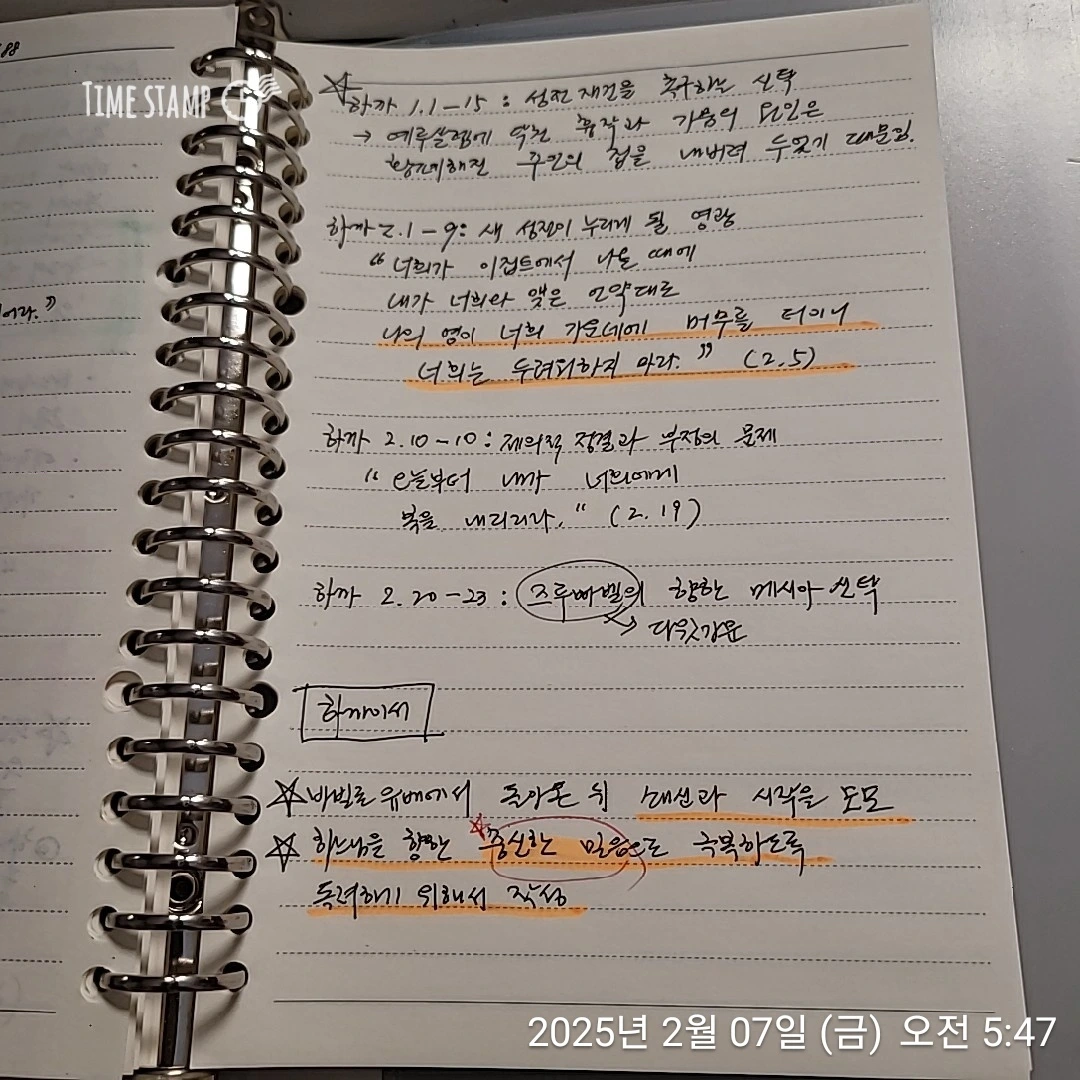 88
TIME STAMP
어라."
☆하까 1.1-15 : 성전 재건을 촉구하는 신탁
→ 예루살렘에 닥친 흉작과 가뭄의 요인은
황폐해진 주님의 집을 내버려 두었기 때문임.
하까 2.1-9: 새 성전이 누리게 될 영광
"너희가 이집트에서 나올 때에
내가 너희와 맺은 언약대로
나의 영이 너희 가운데에 머무를 터이니
너희는 두려워하지 마라." (2.5)
하까 2.10-10: 제의적 정결과 부정의 문제
"오늘부터 내가 너희에게
복을 내리리라." (2.19)
하까 2.20-23 : 즈루빠벨의 향한 메시아 신탁
→ 다윗가문
하까이서
☆바빌론 유배에서 돌아온 뒤 시작을 도모
☆ 하느님을 향한 ☆충실한 믿음으로 극복하도록
독려하기 위해서 작성
2025년 2월 07일 (금) 오전 5:47